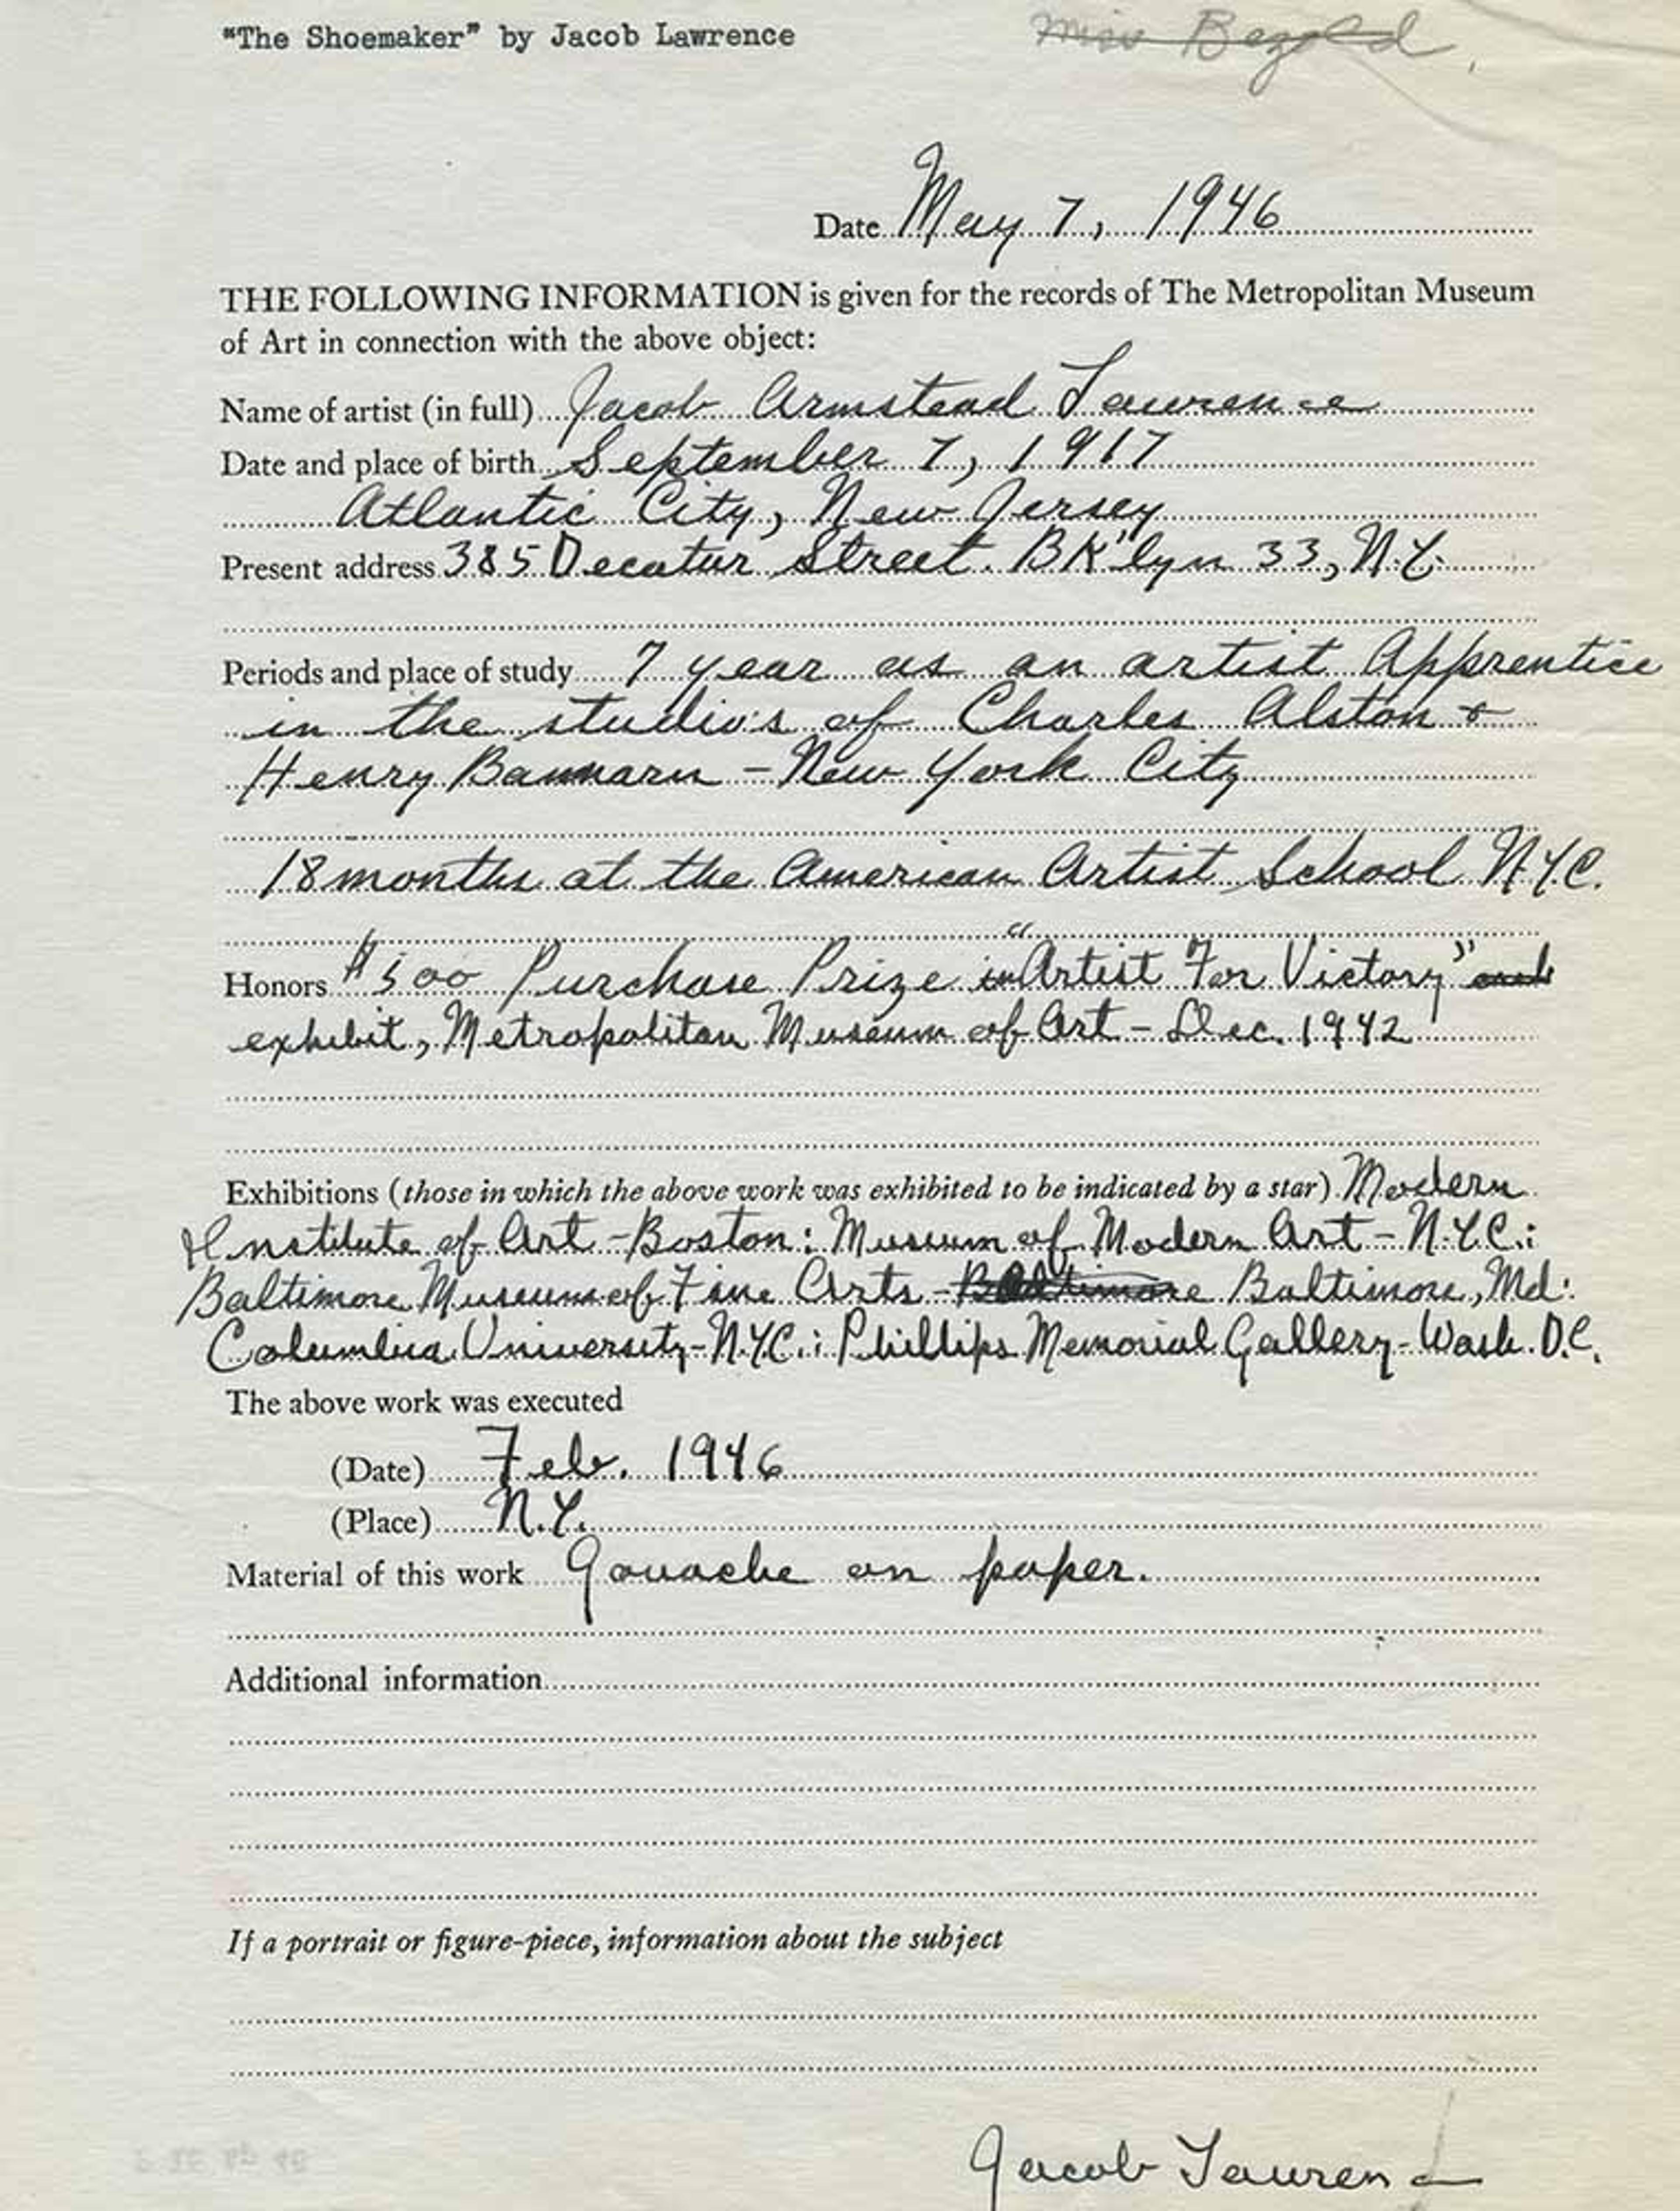 "The Shoemaker" by Jacob Lawrence
Miss Bezold
Date May 7, 1946
THE FOLLOWING INFORMATION is given for the records of The Metropolitan Museum
of Art in connection with the above object:
Name of artist (in full) Jacob Armstead Lawrence
Date and place of birth September 7, 1917
Atlantic City, New Jersey
Present address 385 Decatur Street. BK'lyn 33, N.Y.
Periods and place of study 7 year as an artist Apprentice
in the studio's of Charles Alston &
Henry Bannarn - New York City
18 months at the American Artist School N.Y.C.
Honors $500 Purchase Prize in "Artist For Victory" and
exhibit, Metropolitan Museum of Art - Dec. 1942
Exhibitions (those in which the above work was exhibited to be indicated by a star) Modern
Institute of Art - Boston: Museum of Modern Art - N.Y.C.:
Baltimore Museum of Fine Arts - Baltimore Baltimore, Md:
Columbia University - N.Y.C.: Phillips Memorial Gallery - Wash. D.C.
The above work was executed
(Date) Feb. 1946
(Place) N.Y.
Material of this work Gouache on paper.
Additional information
If a portrait or figure-piece, information about the subject
Jacob Lawrence